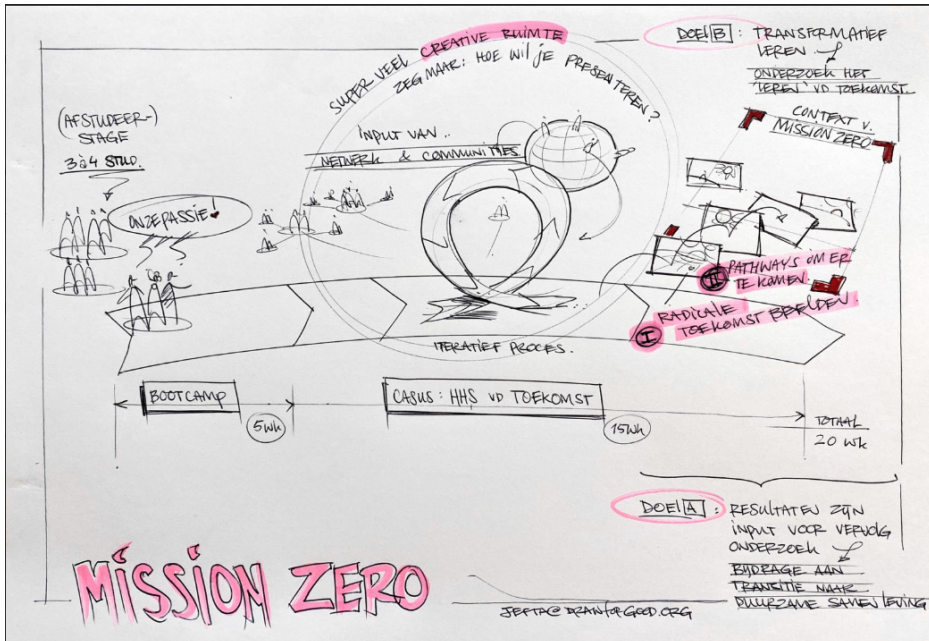 SUPER VEEL CREATIVE RUIMTE
ZEG MAAR: HOE WIL JE PRESENTEREN?
DOEL B : TRANSFORMATIEF
LEREN
ONDERZOEK HET
'LEREN' VD TOEKOMST
(AFSTUDEER-)
STAGE
3 à 4 STUD.
ONZE PASSIE!
INPUT VAN..
NETWERK & COMMUNITIES
CONTEXT V.
MISSION ZERO
II PATHWAYS OM ER
TE KOMEN.
I RADICALE
TOEKOMST BEELDEN.
ITERATIEF PROCES.
BOOTCAMP
5 wk
CASUS: HHS VD TOEKOMST
15 wk
TOTAAL
20 wk
DOEL A : RESULTATEN ZIJN
INPUT VOOR VERVOLG
ONDERZOEK
BIJDRAGE AAN
TRANSITIE NAAR
DUURZAME SAMENLEVING
MISSION ZERO
JEFTA@DRAWFORGOOD.ORG